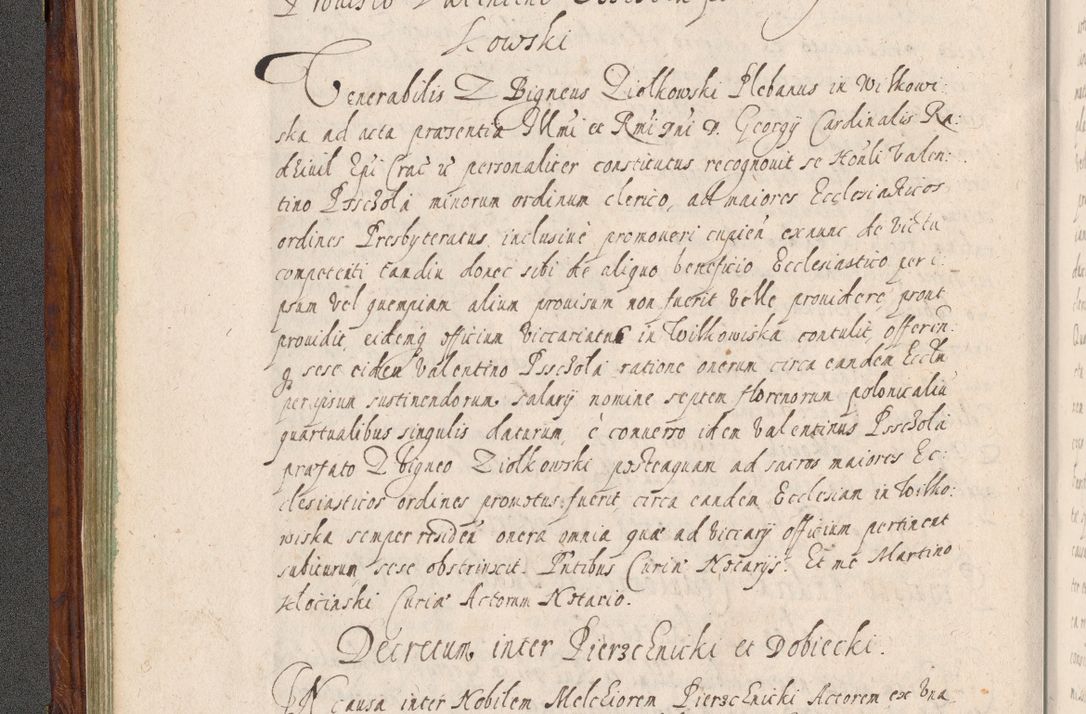 Provisio Valentino
kowski
Venerabilis Zbigneus Ziolkowski Plebanus in Wilkowi:
ska ad acta præsentia Illmi et Rmi Dni D. Georgij Cardinalis Ra:
dziuil Epi Crac̃ personaliter constitutus recognouit se Honli Valen:
tino Psscżola minorum ordinum clerico, ad maiores Ecclesiasticos
ordines Presbyteratus inclusiuè promoueri cupieñ exnunc de victu
competenti tamdiu donec sibi de aliquo beneficio Ecclesiastico per i:
psum vel quempiam alium prouisum non fuerit velle prouidere, prout
prouidit, eidemq officium viccariatus in Wilkowiska contulit, offeren:
q sese eidem Valentino Psscżola ratione onerum circa eandem Ecclm
per ipsum sustinendorum salarij nomine septem florenorum polonicaliũ
quartualibus singulis daturum, è conuerso idem Valentinus Psscżola
præfato Zbigneo Ziolkowski posteaquam ad sacros maiores Ec:
clesiasticos ordines promotus fuerit, circa eandem Ecclesiam in Wilko:
wiska semper resideñ onera omnia quæ ad viccarij officium pertinent
subiturum sese obstrinxit. Pntibus Curiæ Notarijs. Et me Martino
Kłocinski Curiæ Actorum Notario.
Decretum inter Pierzchnicki et Dobiecki.
IN causa inter Nobilem Melchiorem Pierzchnicki Actorem ex vna